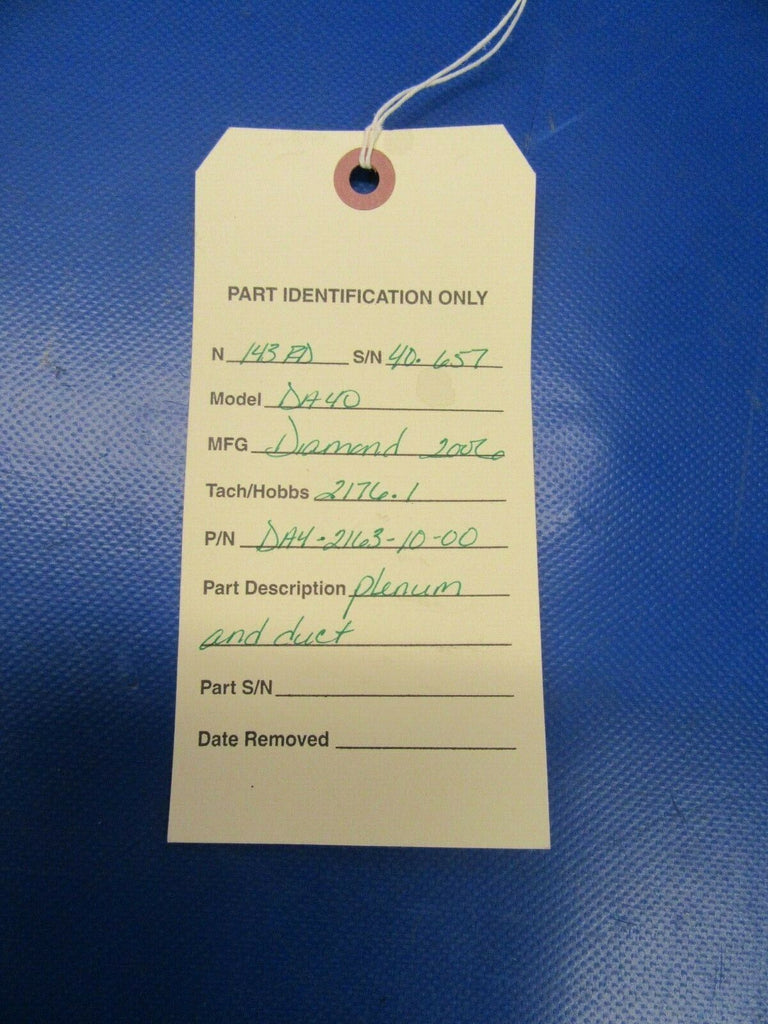 PART IDENTIFICATION ONLY
N 143 ED S/N 40.657
Model DA40
MFG Diamond 2006
Tach/Hobbs 2176.1
P/N DA4-2163-10-00
Part Description plenum
and duct
Part S/N
Date Removed